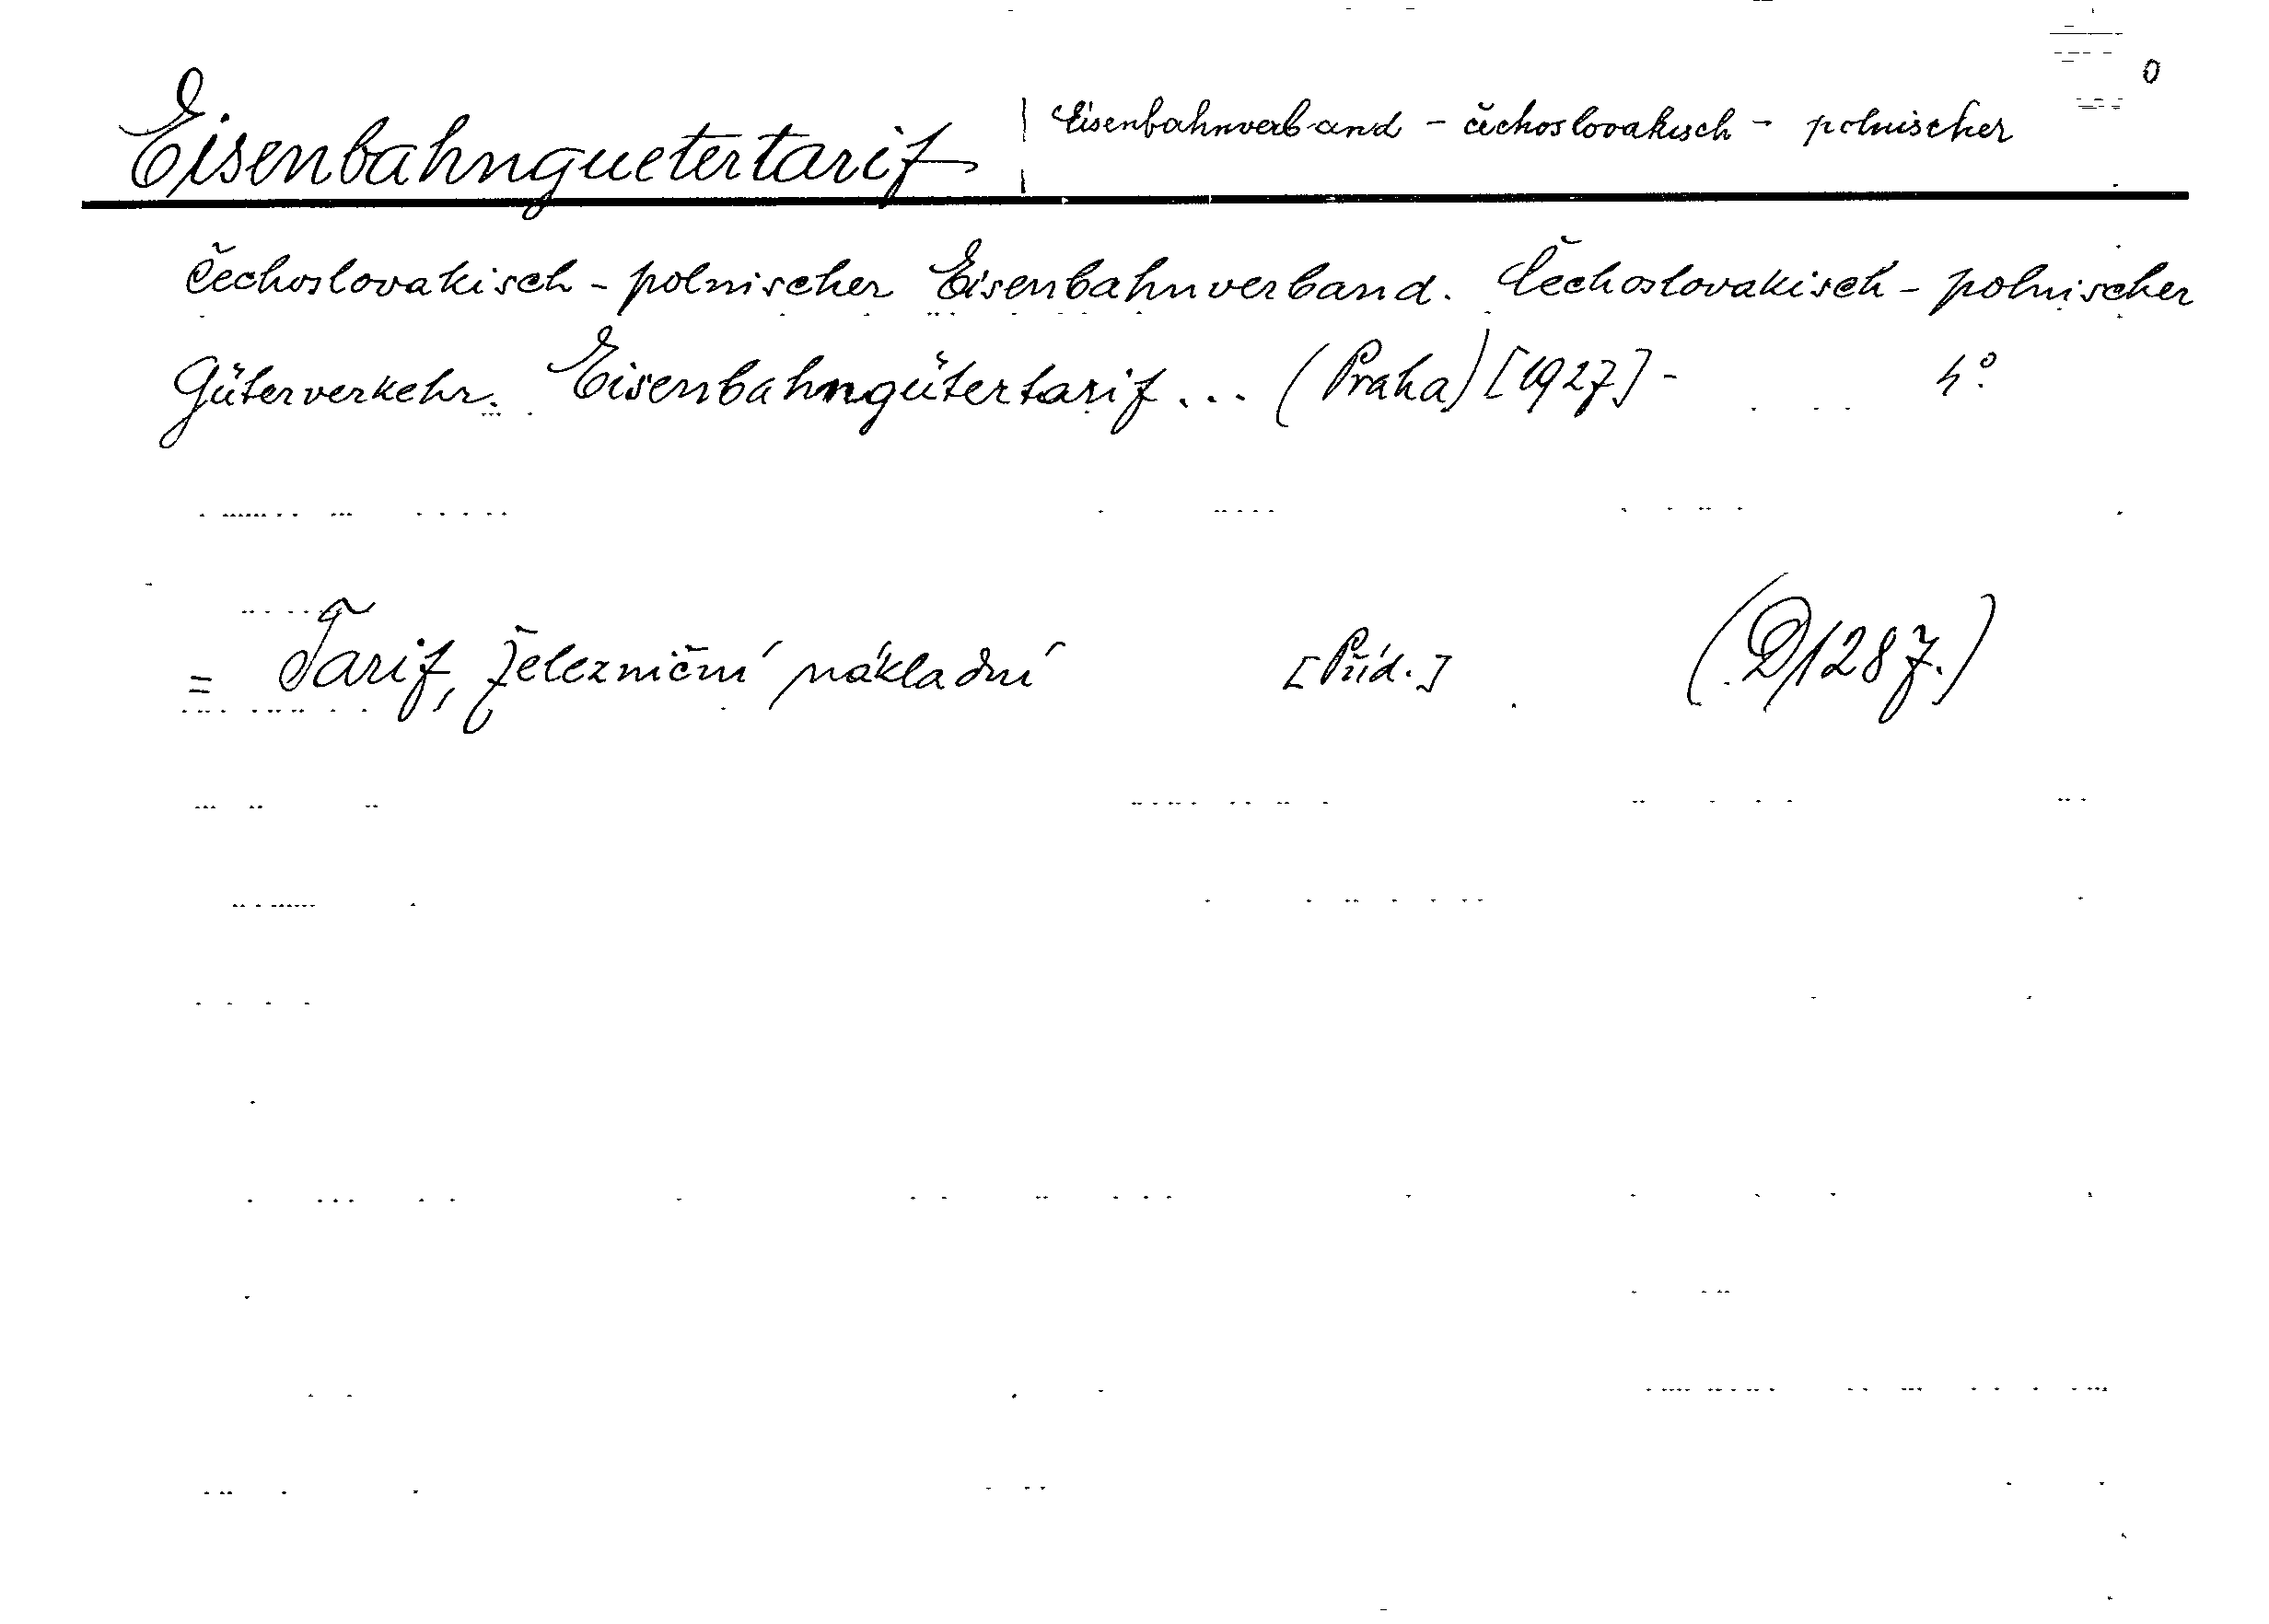 Eisenbahnguetertarif | Eisenbahnverband - čechoslovakisch - polnischer 0
Čechoslovakisch - polnischer Eisenbahnverband. Čechoslovakisch - polnischer
Güterverkehr. Eisenbahngütertarif ... (Praha) [1927] - 4°.
= Tarif, železniční nákladní [Příd.] (D1287.)